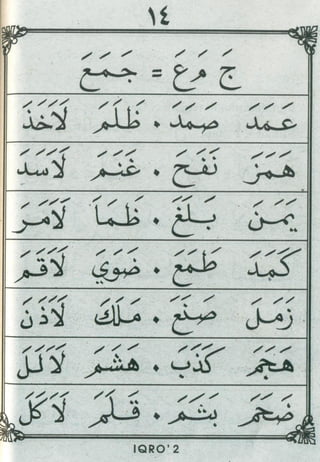 ١٤
جَ مَ عَ = جَمَعَ
عَمَدَ صَمَدَ . ظَلَمَ لَاَخَذَ
هَمَزَ نَفَحَ . غَنَمَ لَاَسَدَ
يَمَنَ بَلَغَ . ظَمَاَ لَاَمَرَ
كَمَدَ طَمَعَ . ضَوَيَ لَاَقَمَ
زَمَلَ صَنَعَ . مَلَكَ لَاَذَنَ
هَجَمَ كَذَبَ . هَشَمَ لَاَلَلَ
ضَخَمَ بَشَمَ . قَلَمَ لَاَكَلَ
IQRO' 2